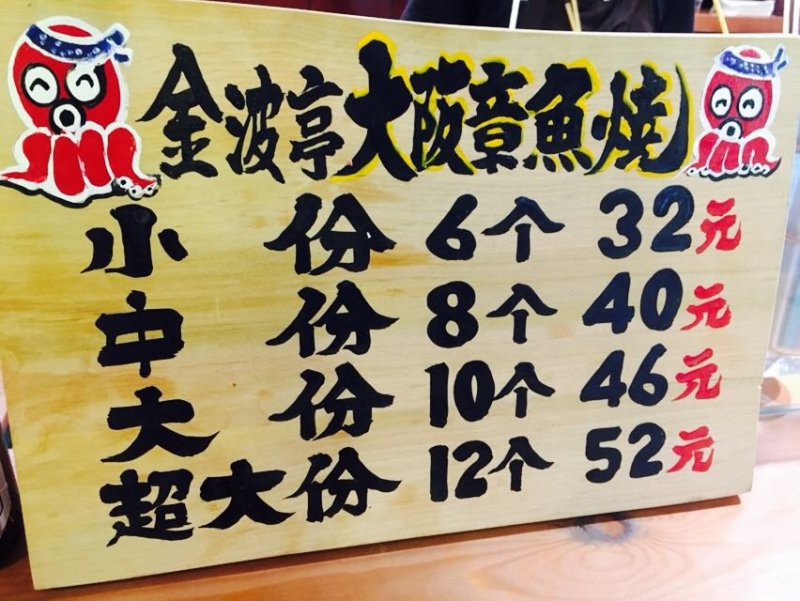 金波亭大阪章魚燒
小份6个32元
中份8个40元
大份10个46元
超大份12个52元